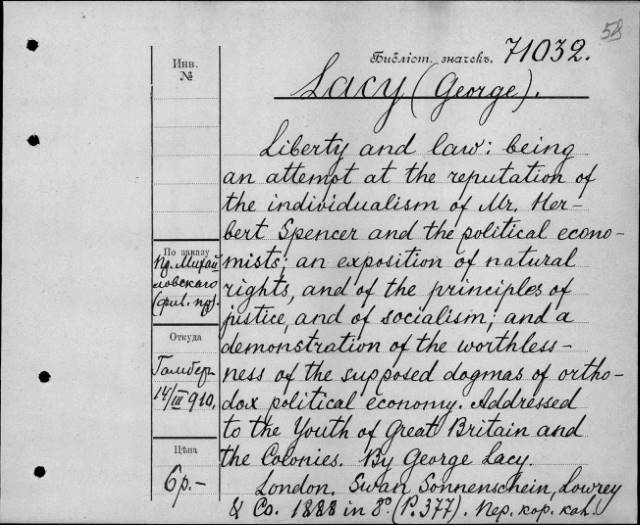 58
Инв.
№
Библіот. значекъ. 71032.
Lacy (George).
Liberty and law: being
an attempt at the reputation of
the individualism of Mr. Her-
bert Spencer and the political econo-
mists; an exposition of natural
rights, and of the principles of
justice, and of socialism; and a
demonstration of the worthless-
ness of the supposed dogmas of ortho-
dox political economy. Addressed
to the Youth of Great Britain and
the Colonies. By George Lacy.
London. Swan Sonnenschein, Lowrey
& Co. 1888 in 8º. (P. 377). Пер. кор. кан.
По заказу
Михай
ловскаго
Откуда
Гамберъ
14/III 910.
Цѣна
6 р.-